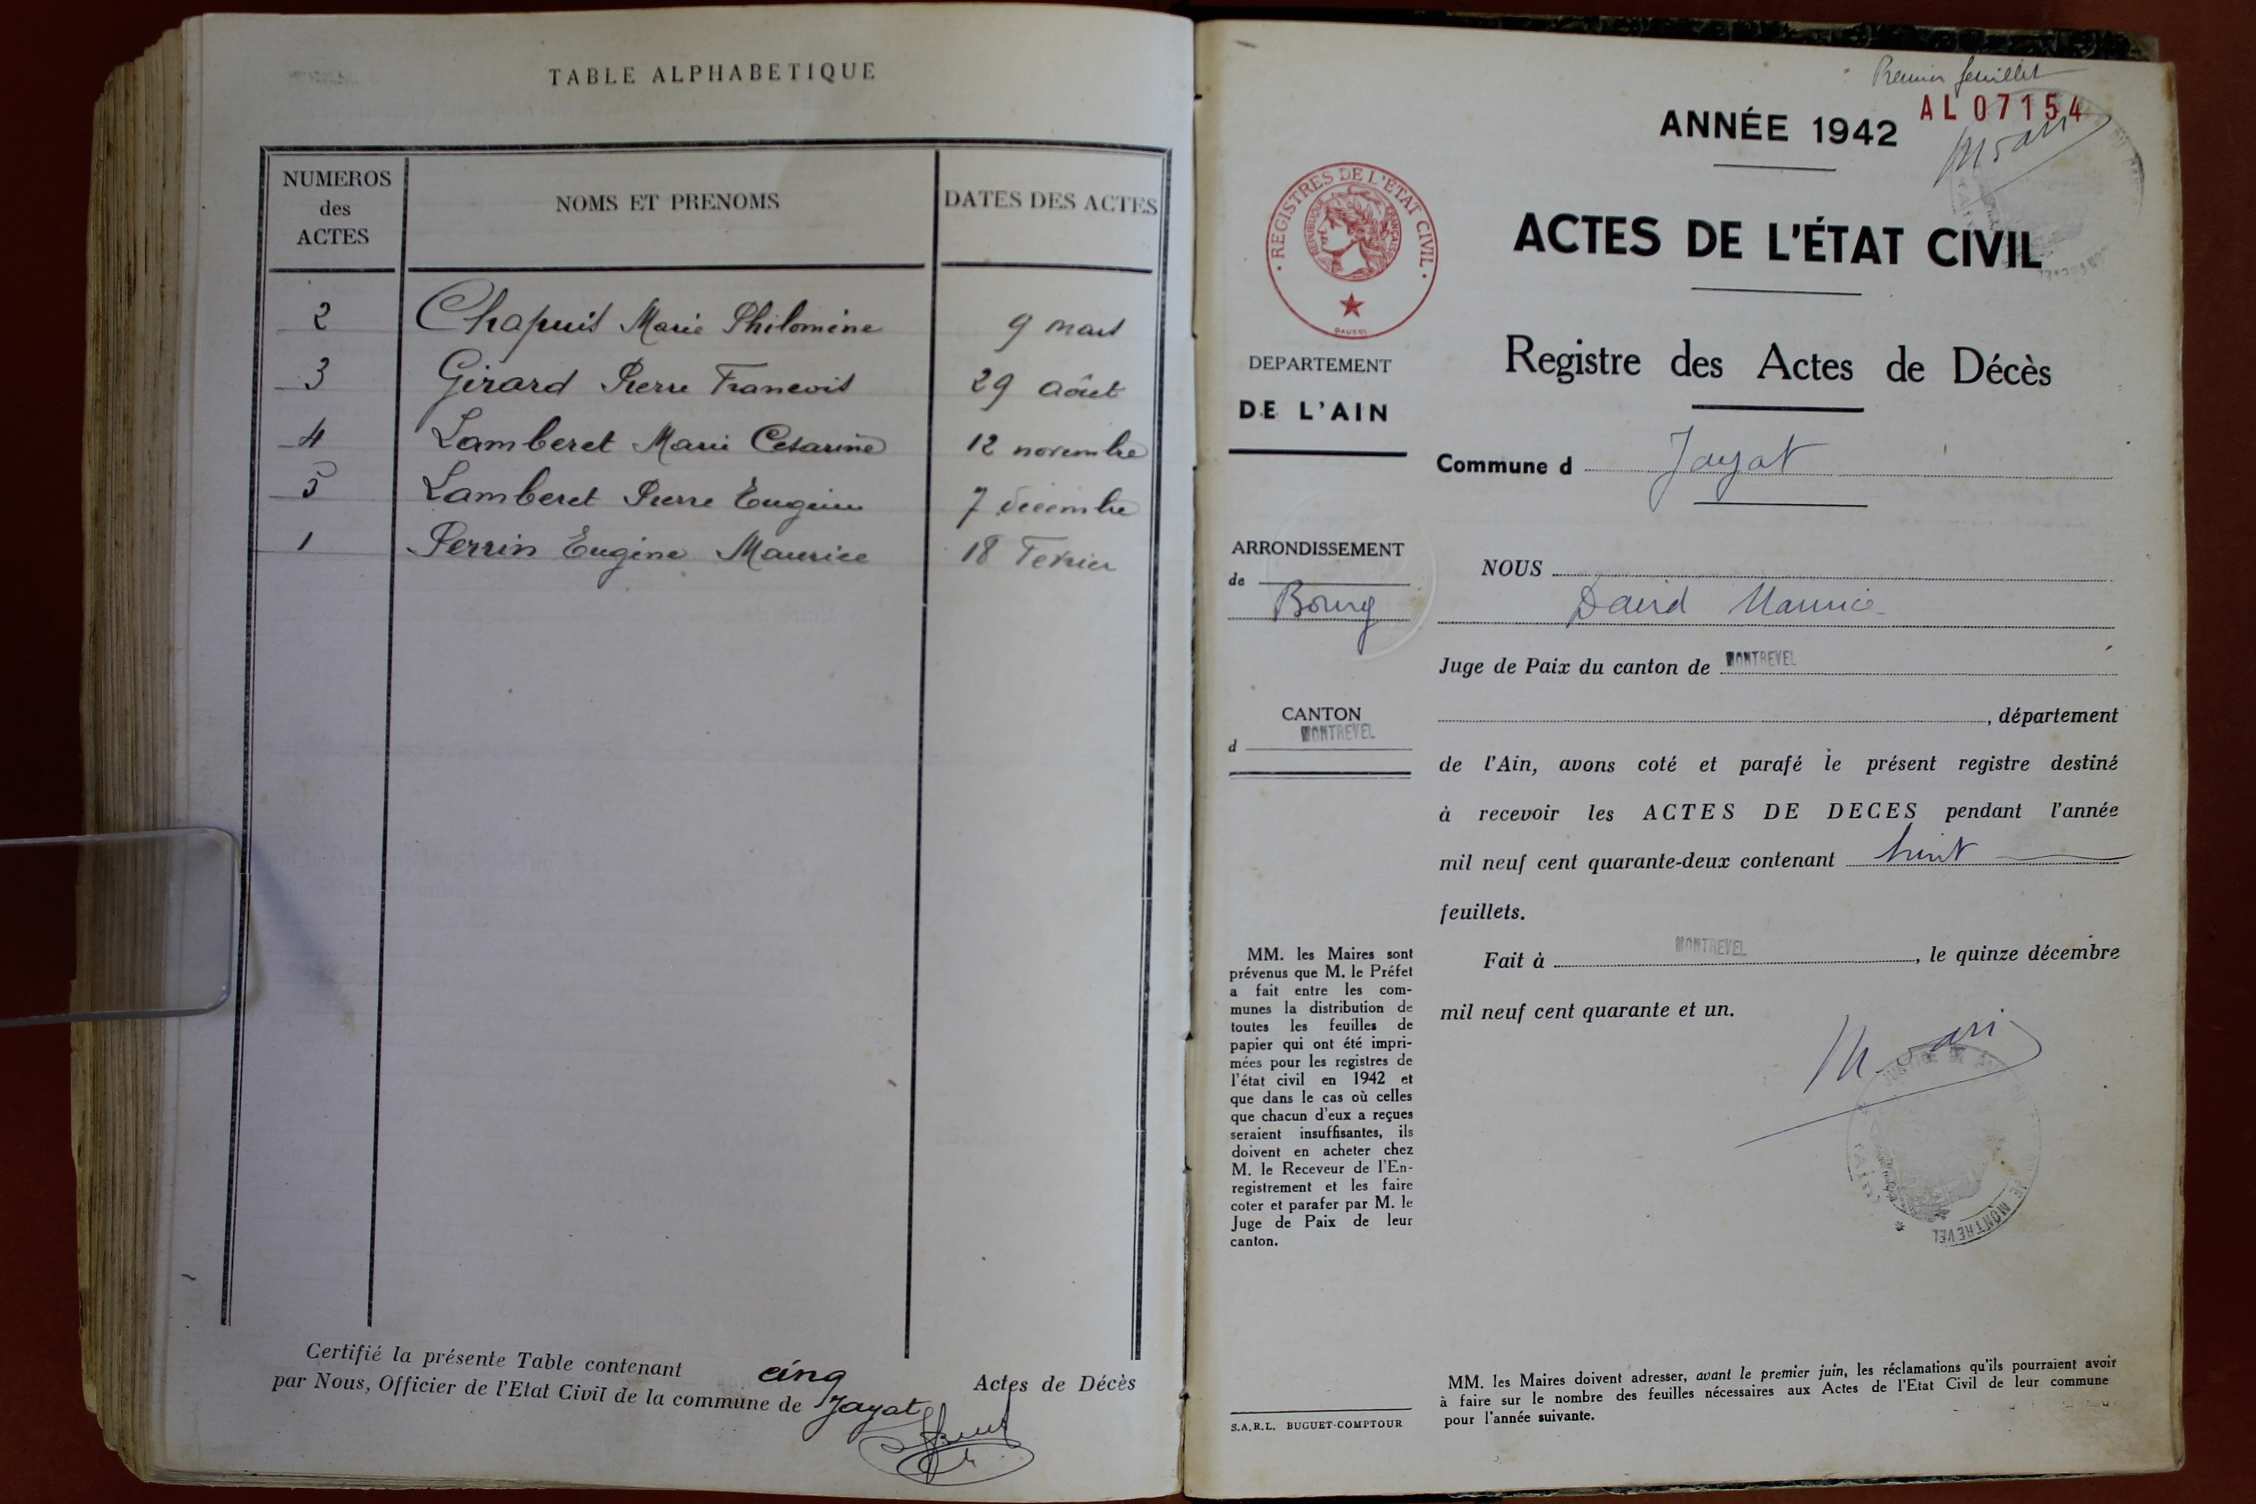 TABLE ALPHABETIQUE
NUMEROS
des
ACTES
NOMS ET PRENOMS
DATES DES ACTES
2 Chapuis Marie Philomène 9 mars
3 Girard Pierre Francois 29 Août
4 Lamberet Marie Césarine 12 novembre
5 Lamberet Pierre Eugène 7 décembre
1 Perrin Eugène Maurice 18 Fevrier
Certifié la présente Table contenant cinq Actes de Décès
par Nous, Officier de l'Etat Civil de la commune de Jayat
Premier feuillet
AL07154
ANNÉE 1942
REGISTRES DE L'ETAT CIVIL
REPUBLIQUE FRANÇAISE
ACTES DE L'ÉTAT CIVIL
Registre des Actes de Décès
DEPARTEMENT
DE L'AIN
Commune d Jayat
ARRONDISSEMENT
de
Bourg
NOUS
David Maurice
Juge de Paix du canton de MONTREVEL
CANTON
d MONTREVEL
, département
de l'Ain, avons coté et parafé le présent registre destiné
à recevoir les ACTES DE DECES pendant l'année
mil neuf cent quarante-deux contenant huit
feuillets.
Fait à MONTREVEL, le quinze décembre
mil neuf cent quarante et un.
MM. les Maires sont
prévenus que M. le Préfet
a fait entre les com-
munes la distribution de
toutes les feuilles de
papier qui ont été impri-
mées pour les registres de
l'état civil en 1942 et
que dans le cas où celles
que chacun d'eux a reçues
seraient insuffisantes, ils
doivent en acheter chez
M. le Receveur de l'En-
registrement et les faire
coter et parafer par M. le
Juge de Paix de leur
canton.
DE MONTREVEL
S.A.R.L. BUGUET-COMPTOUR
MM. les Maires doivent adresser, avant le premier juin, les réclamations qu'ils pourraient avoir
à faire sur le nombre des feuilles nécessaires aux Actes de l'Etat Civil de leur commune
pour l'année suivante.